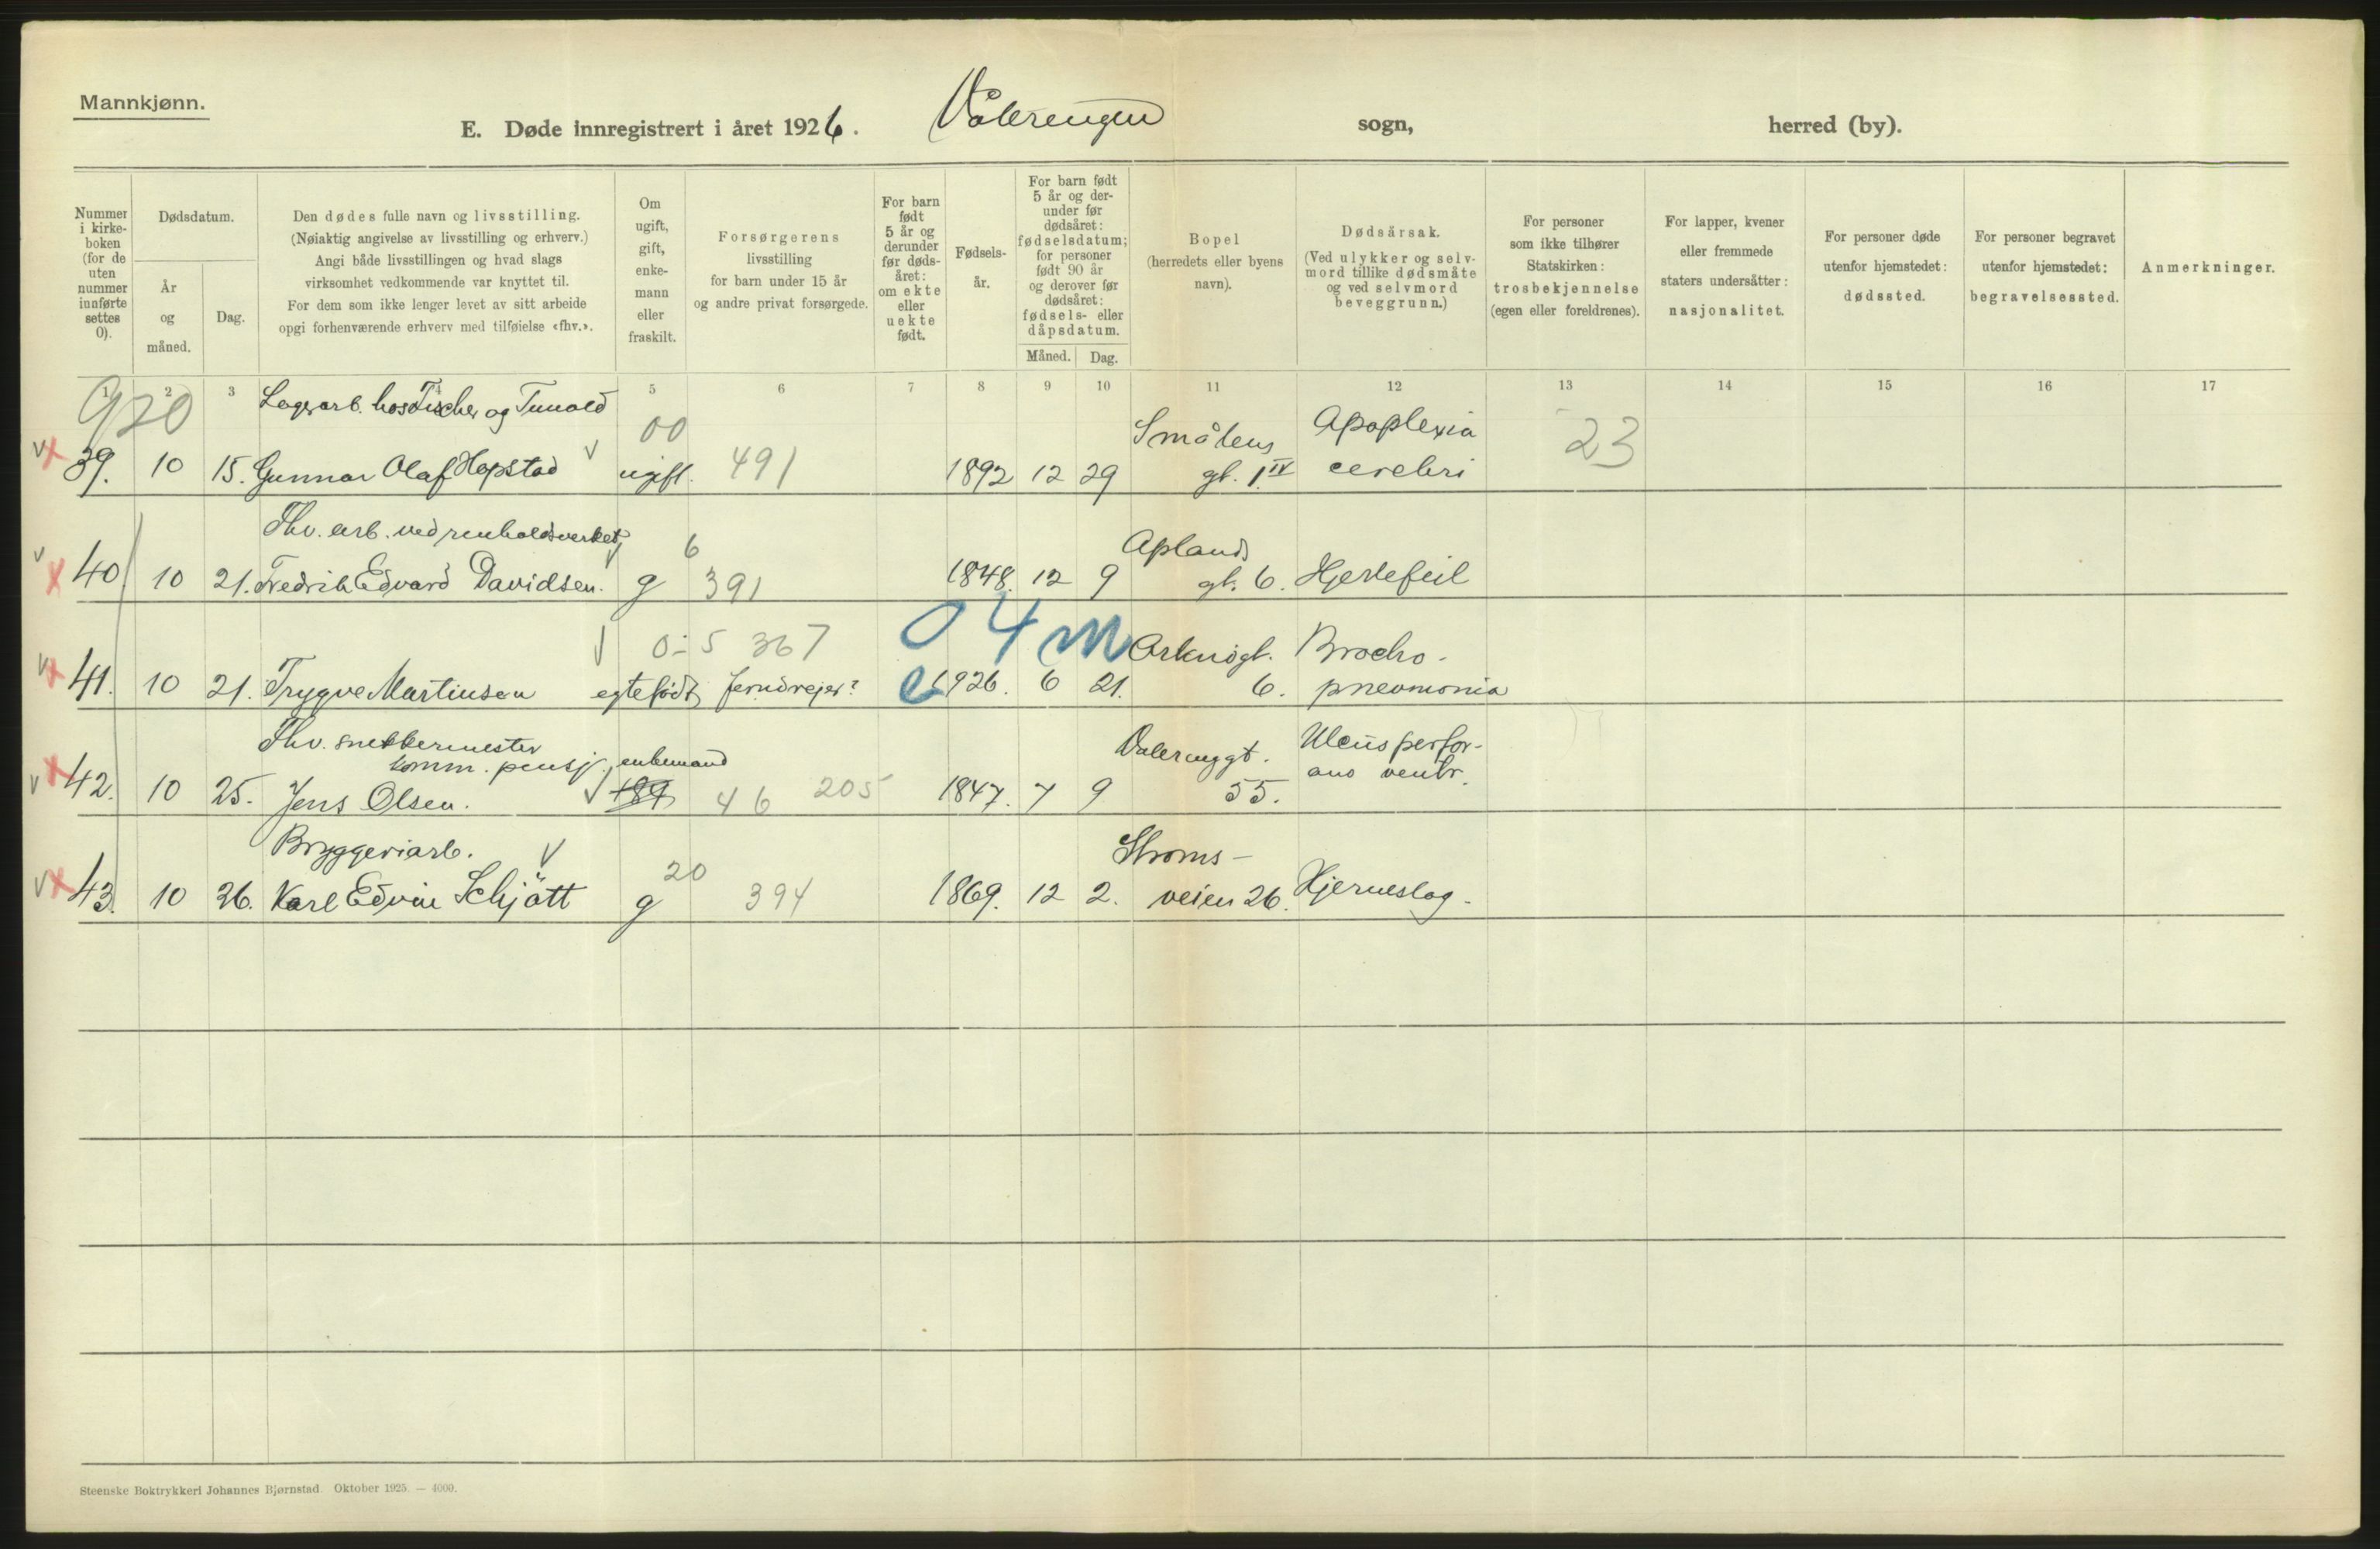 Mannkjønn.
E. Døde innregistrert i året 1926. Vålerengen sogn, herred (by).
Nummer i kirke- boken (for de uten nummer innførte settes 0).
Dødsdatum.
År og måned.
Dag.
Den dødes fulle navn og livsstilling.
(Nøiaktig angivelse av livsstilling og erhverv.)
Angi både livsstillingen og hvad slags
virksomhet vedkommende var knyttet til.
For dem som ikke lenger levet av sitt arbeide
opgi forhenværende erhverv med tilføielse «fhv.».
Om ugift, gift, enke- mann eller fraskilt.
Forsørgerens
livsstilling
for barn under 15 år
og andre privat forsørgede.
For barn født 5 år og derunder før døds- året: om ekte eller uekte født.
Fødsels- år.
For barn født 5 år og der- under før dødsåret: fødselsdatum; for personer født 90 år og derover før dødsåret: fødsels- eller dåpsdatum.
Måned. Dag.
Bopel
(herredets eller byens
navn).
Dødsårsak.
(Ved ulykker og selv-
mord tillike dødsmåte
og ved selvmord
beveggrunn.)
For personer
som ikke tilhører
Statskirken:
trosbekjennelse
(egen eller foreldrenes).
For lapper, kvener
eller fremmede
staters undersåtter:
nasjonalitet.
For personer døde
utenfor hjemstedet:
dødssted.
For personer begravet
utenfor hjemstedet:
begravelsessted.
Anmerkninger.
1 2 3 4 5 6 7 8 9 10 11 12 13 14 15 16 17
920 Lagerarb. hos Fischer og Tunold 00 Småtens Apoplexia 23
39. 10 15. Gunnar Olaf Hopstad ugift. 491 1892 12 29 gt. 1 IV cerebri
Fhv. arb. ved renholdsverket 6 Aplands
40 10 21. Fredrik Edvard Davidsen. g 391 1848. 12 9 gt. 6. Hjertefeil
0-5 367 04m Brocho-
41. 10 21. Trygve Martinsen egte født, e 1926. 6 21. 6. pneomonia
Fhv. snekkermester Vålerenggt. Ulcus perfor-
komm. pensj., enkemand ans ventr.
42. 10 25. Jens Olsen. 46 205 1847. 7 9 55.
Bryggeriarb. 20 Strøms-
43. 10 26. Karl Edvin Schjött g 394 1869. 12 2. veien 26. Hjerneslag.
Steenske Boktrykkeri Johannes Bjørnstad. Oktober 1925. — 4000.